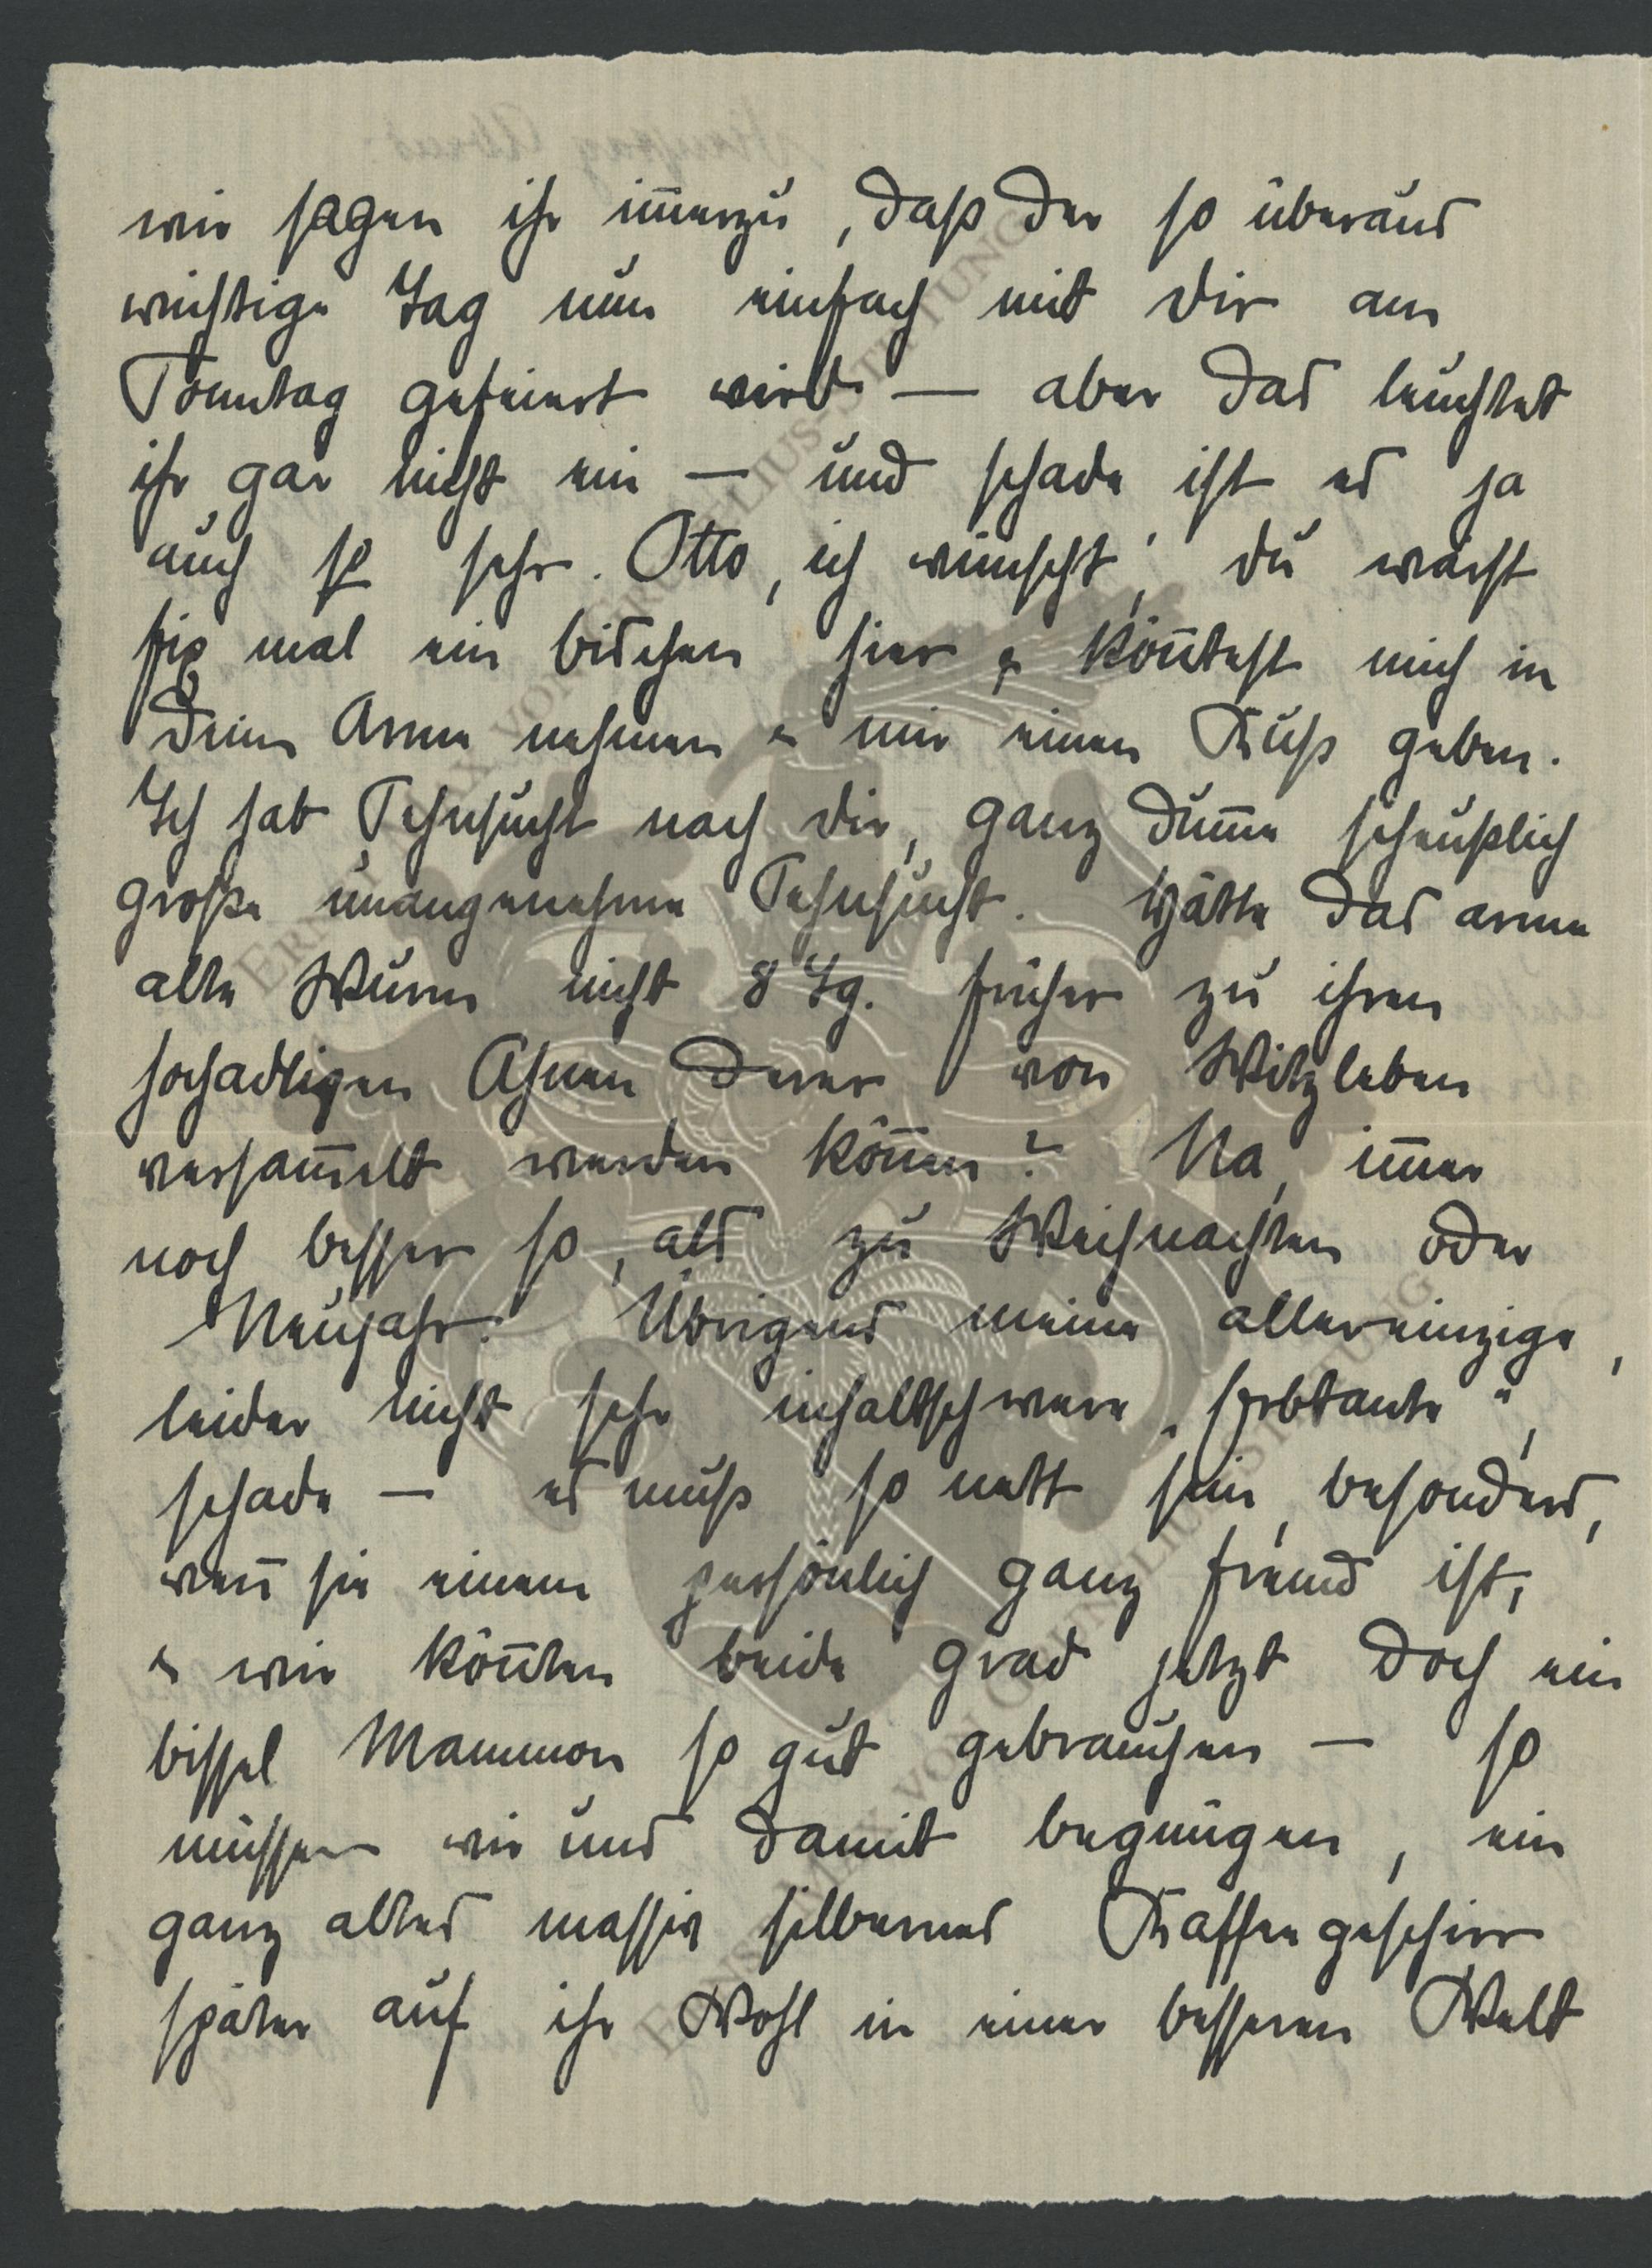 wir sagen ihr im̅erzu, daß der so überaus
wichtige Tag nun einfach mit dir am
Sonntag gefeiert wird — aber das leuchtet
ihr gar nicht ein — und schade ist es ja
auch so sehr. Otto, ich wünscht', du wärst
fix mal ein bischen hier & kön̅test mich in
Deine Arme nehmen & mir einen Kuß geben.
Ich hab Sehnsucht nach dir, ganz dum̅e scheußlich
große unangenehme Sehnsucht. Hätte das arme
alte Wurm nicht 8 Tg. früher zu ihren
hochadligen Ahnen derer von Witzleben
versam̅elt werden kön̅en? Na, im̅er
noch besser so, als zu Weihnachten oder
Neujahr! Übrigens meine allereinzige,
leider nicht sehr inhaltschwere „Erbtante",
schade — es muß so nett sein, besonders,
wen̅ sie einem persönlich ganz fremd ist,
& wir kön̅ten beide grad jetzt doch ein
bissel Mammon so gut gebrauchen — so
müssen wir uns damit begnügen, ein
ganz altes massiv silbernes Kaffeegeschirr
später auf ihr Wohl in einer besseren Welt
ERNST MAX VON GRUNELIUS-STIFTUNG
ERNST MAX VON GRUNELIUS-STIFTUNG